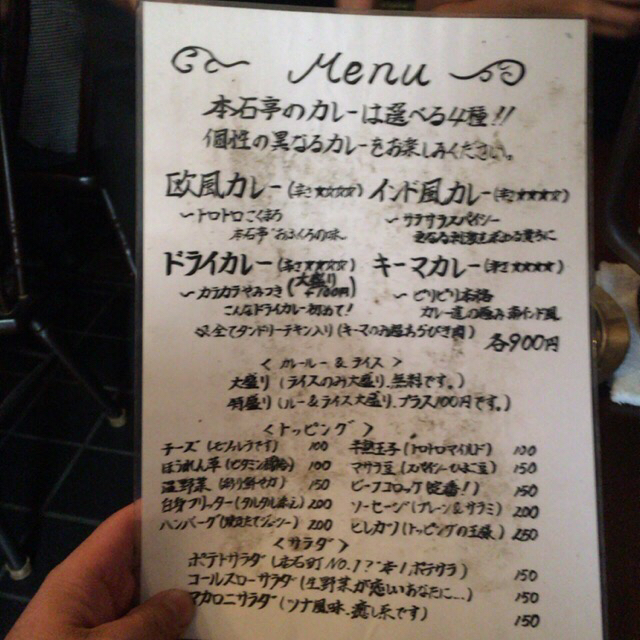 Menu
本石亭のカレーは選べる4種!!
個性の異なるカレーをお楽しみください。
欧風カレー(辛さ★★★★☆) インド風カレー(辛さ★★★★☆)
〜トロトロこくまろ 〜サラサラスパイシー
本石亭"おふくろの味"
ドライカレー(辛さ★★★★☆) キーマカレー(辛さ★★★★☆)
(大盛り +100円)
〜カラカラやみつき 〜ピリピリ本格
こんなドライカレー初めて! カレー道の極み南インド風
全てタンドリーチキン入り(キーマのみ粗あらびき肉)
各900円
<カレールー&ライス>
大盛り(ライスのみ大盛り、無料です。)
特盛り(ルー&ライス大盛り、プラス100円です。)
<トッピング>
チーズ(モツァレラです) 100 半熟玉子(トロトロマイルド) 100
ほうれん草(ビタミン補給) 100 マサラ豆(スパイシーひよこ豆) 150
温野菜(彩り鮮やか) 150 ビーフコロッケ(定番!) 150
白身フリッター(タルタル添え) 200 ソーセージ(プレーン&サラミ) 200
ハンバーグ(焼きたてジューシー) 200 ヒレカツ(トッピングの王様) 250
<サラダ>
ポテトサラダ(本石町NO.1?オ*1ポテサラ) 150
コールスローサラダ(生野菜が恋しいあなたに...) 150
マカロニサラダ(ツナ風味、癒し系です) 150